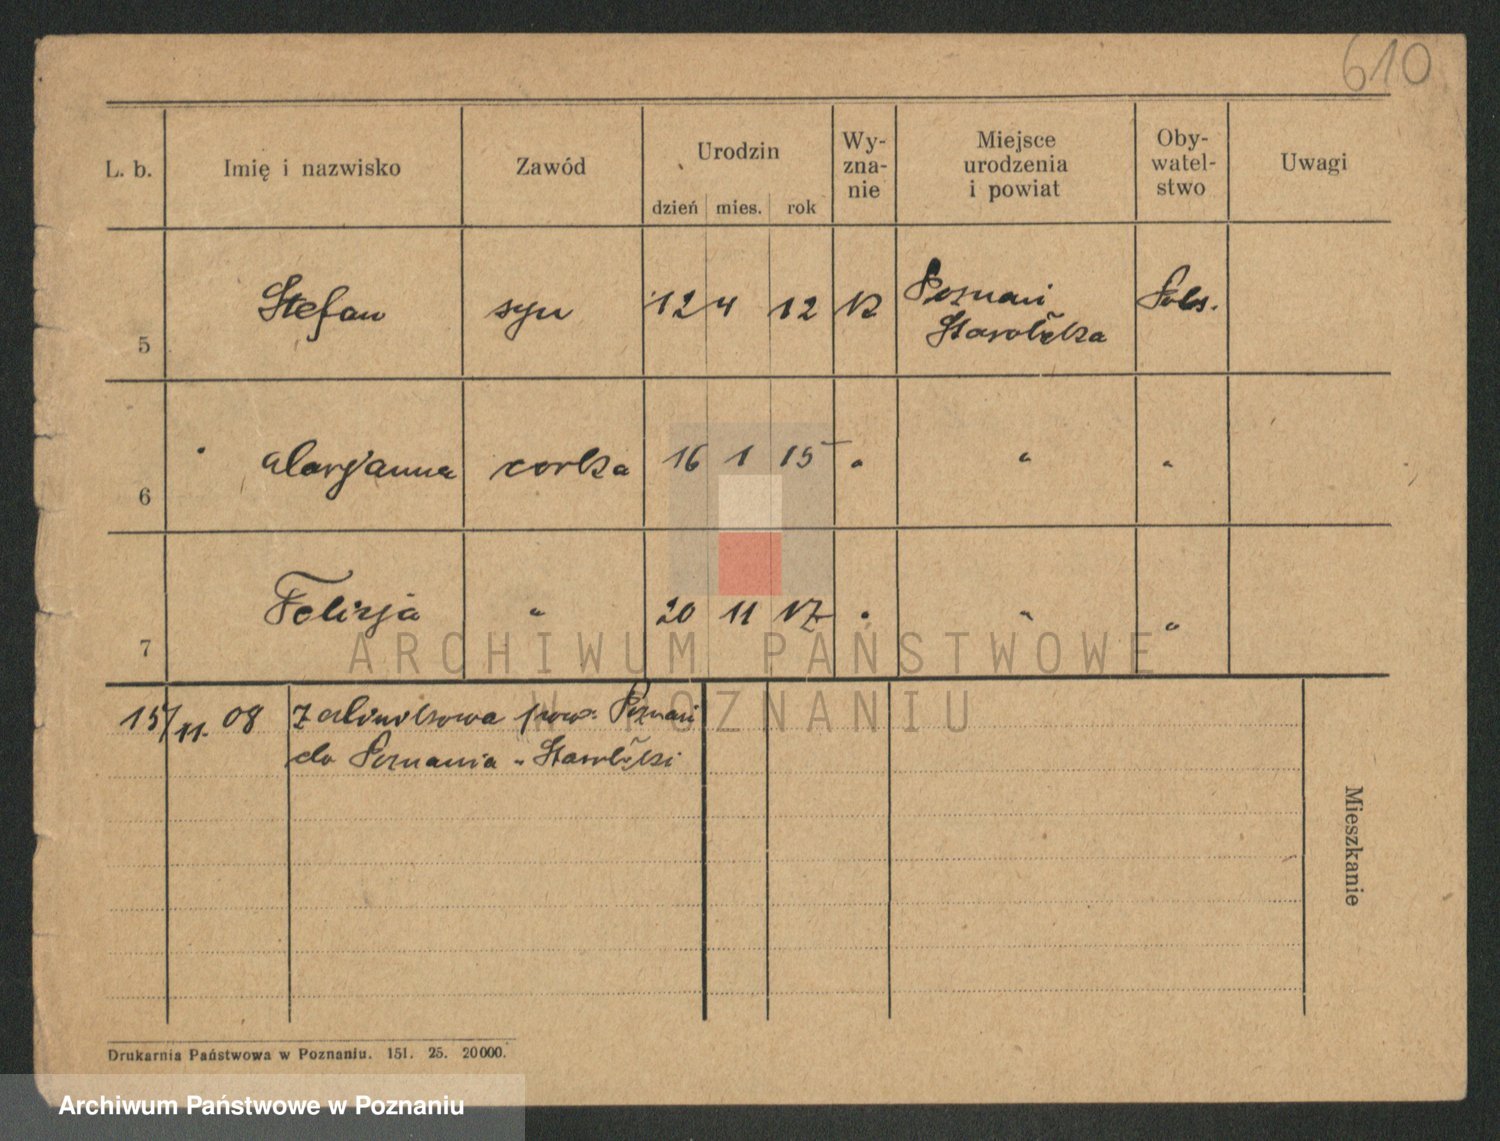 610
L. b.
Imię i nazwisko
Zawód
Urodzin
dzień mies. rok
Wy-
zna-
nie
Miejsce
urodzenia
i powiat
Oby-
watel-
stwo
Uwagi
5 Stefan syn 12 4 12 K Poznań Pols.
Starołęka
6 Maryanna corka 16 1 15 " " "
7 Felicja " 20 11 17 " " "
ARCHIWUM PAŃSTWOWE
W POZNANIU
15/11. 08 z pow. Poznań
do Poznania - Starołęki
Mieszkanie
Drukarnia Państwowa w Poznaniu. 151. 25. 20000.
Archiwum Państwowe w Poznaniu